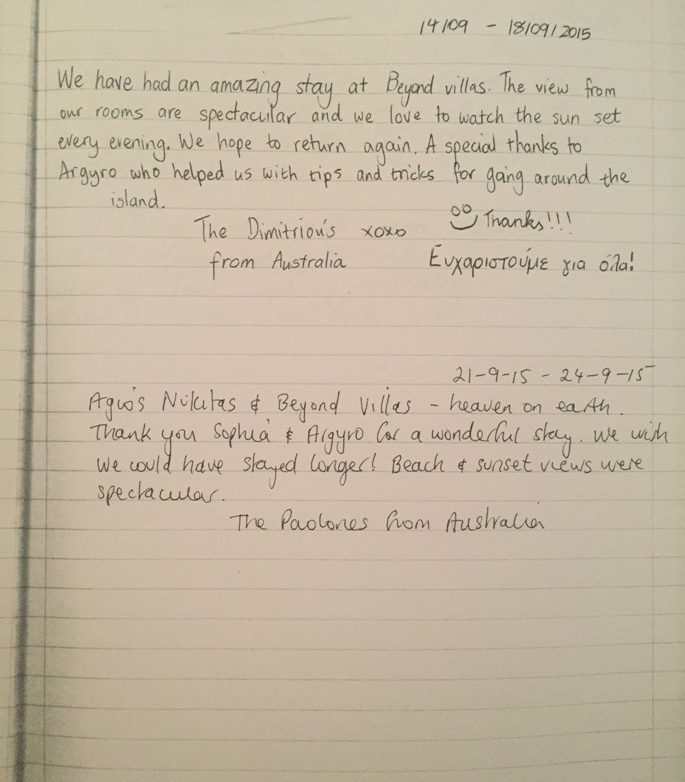 14/09 - 18/09/2015
We have had an amazing stay at Beyond villas. The view from
our rooms are spectacular and we love to watch the sun set
every evening. We hope to return again. A special thanks to
Argyro who helped us with tips and tricks for going around the
island.
The Dimitriou's xoxo
Thanks!!!
from Australia
Ευχαριστούμε για όλα!
21-9-15 - 24-9-15
Agios Nikitas & Beyond Villas - heaven on earth.
Thank you Sophia & Argyro for a wonderful stay. We wish
we could have stayed longer! Beach & sunset views were
spectacular.
The Paolones from Australia